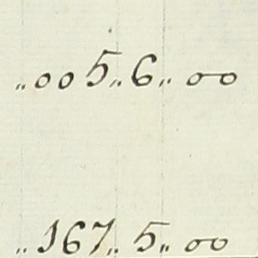 „005„6„00
„167„5„00